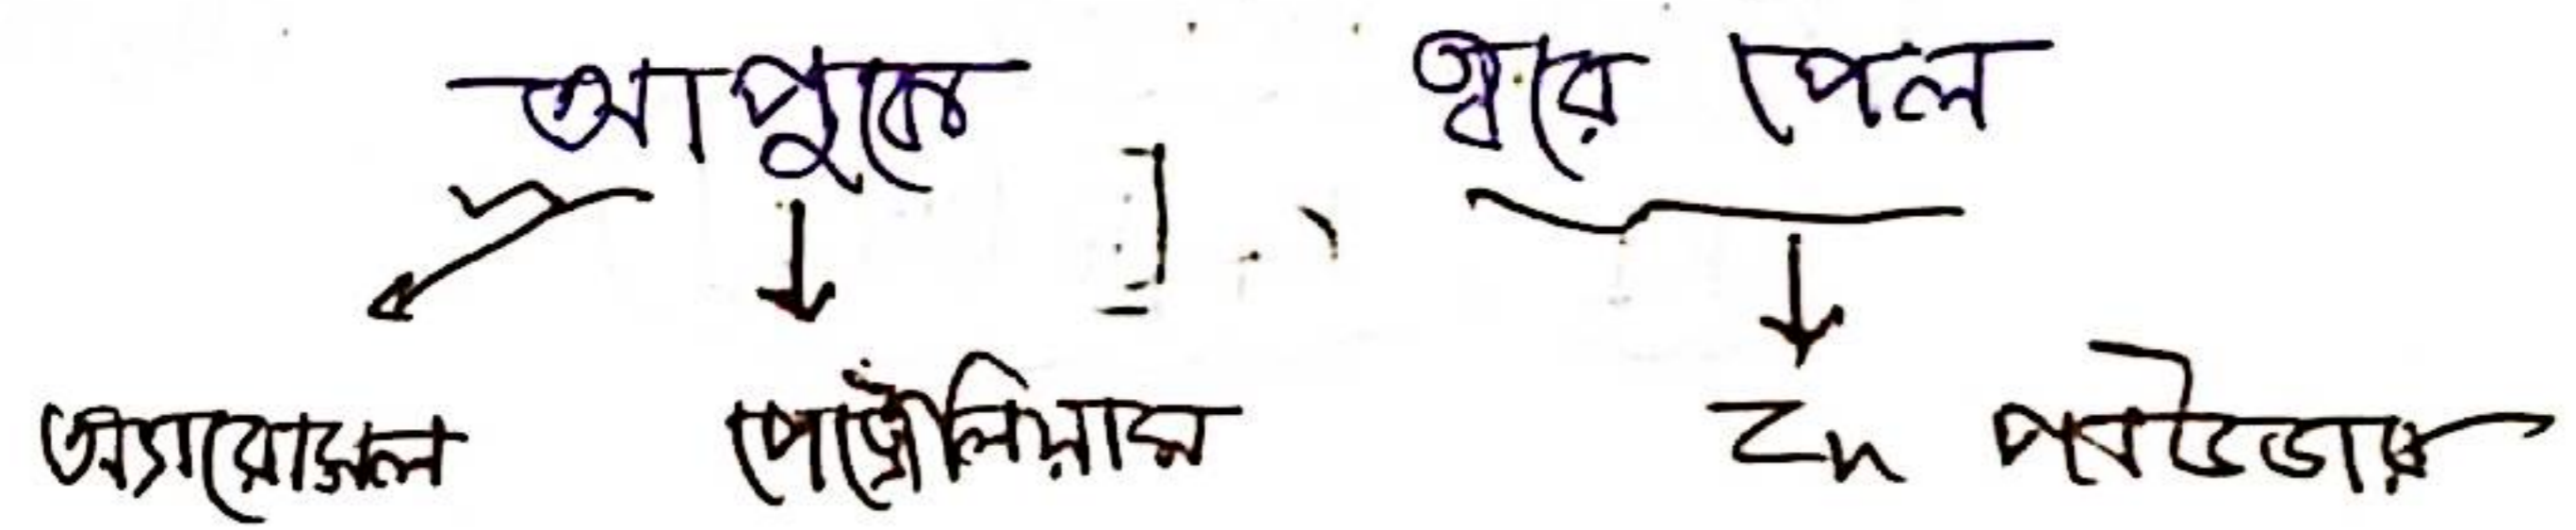 আপুকে ঘরে পেল
অ্যারোসল পেট্রোলিয়াম Zn পাউডার